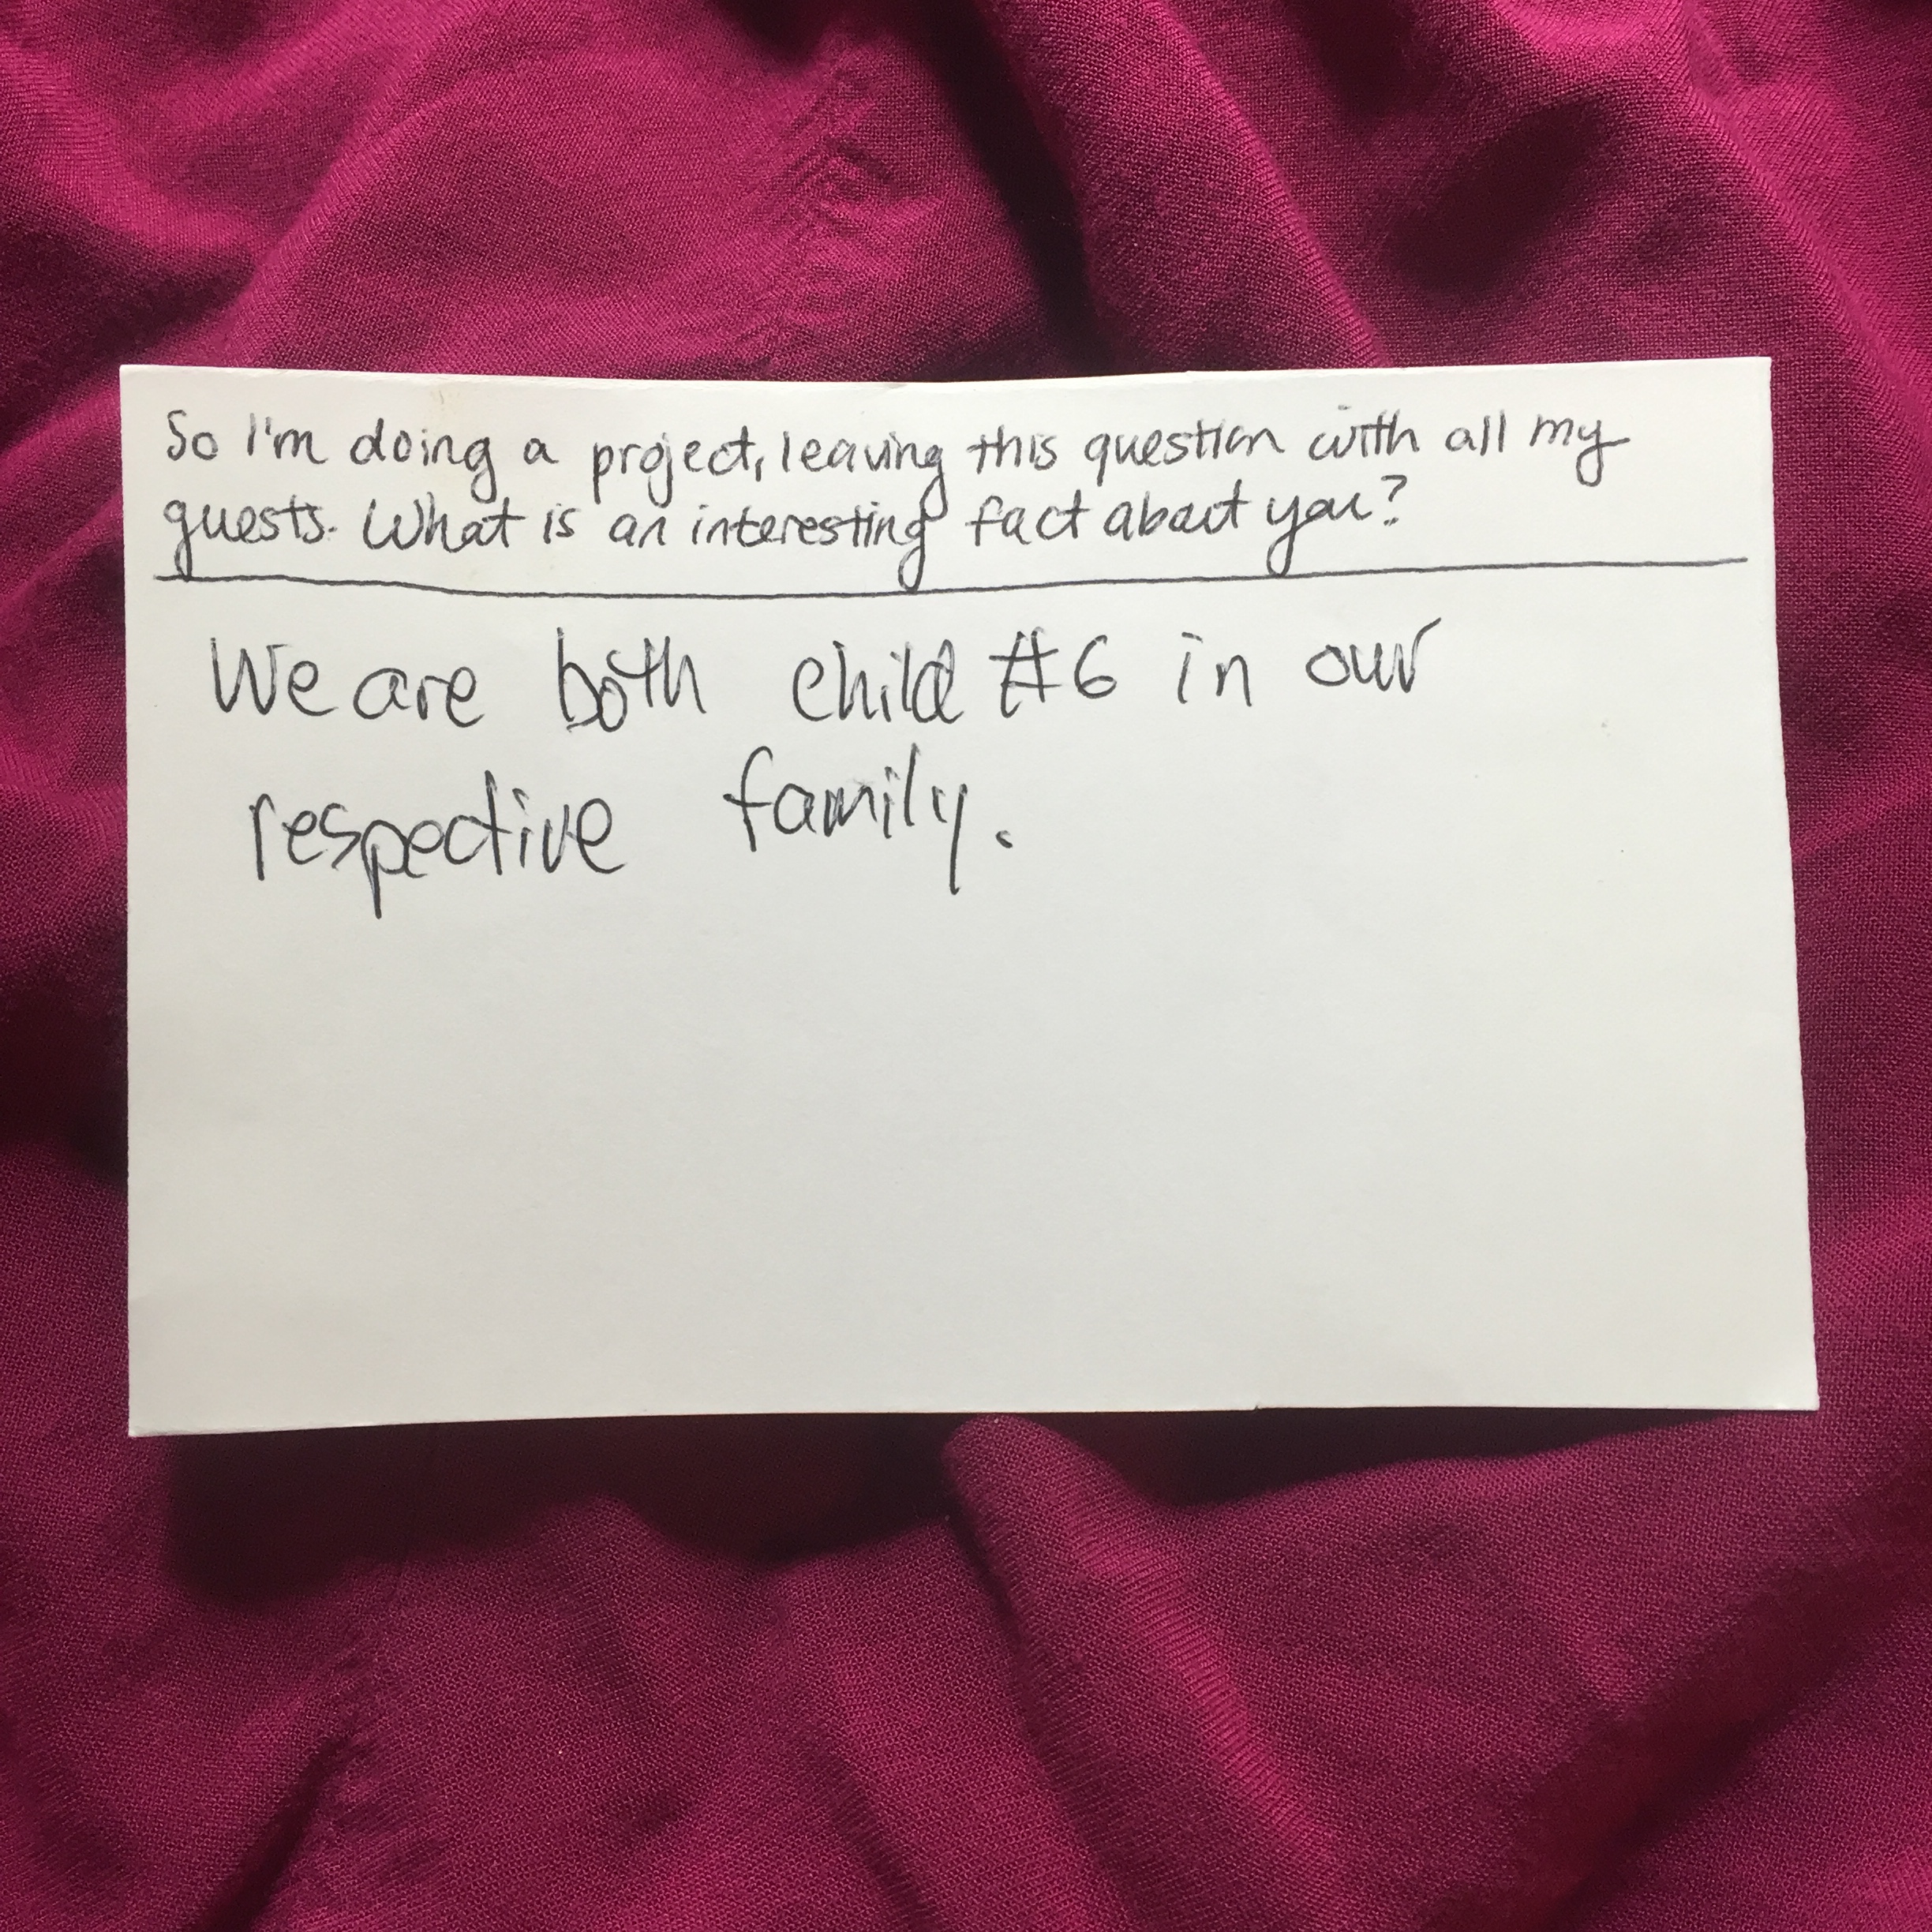 So I'm doing a project, leaving this question with all my
guests. What is an interesting fact about you?
We are both child #6 in our
respective family.